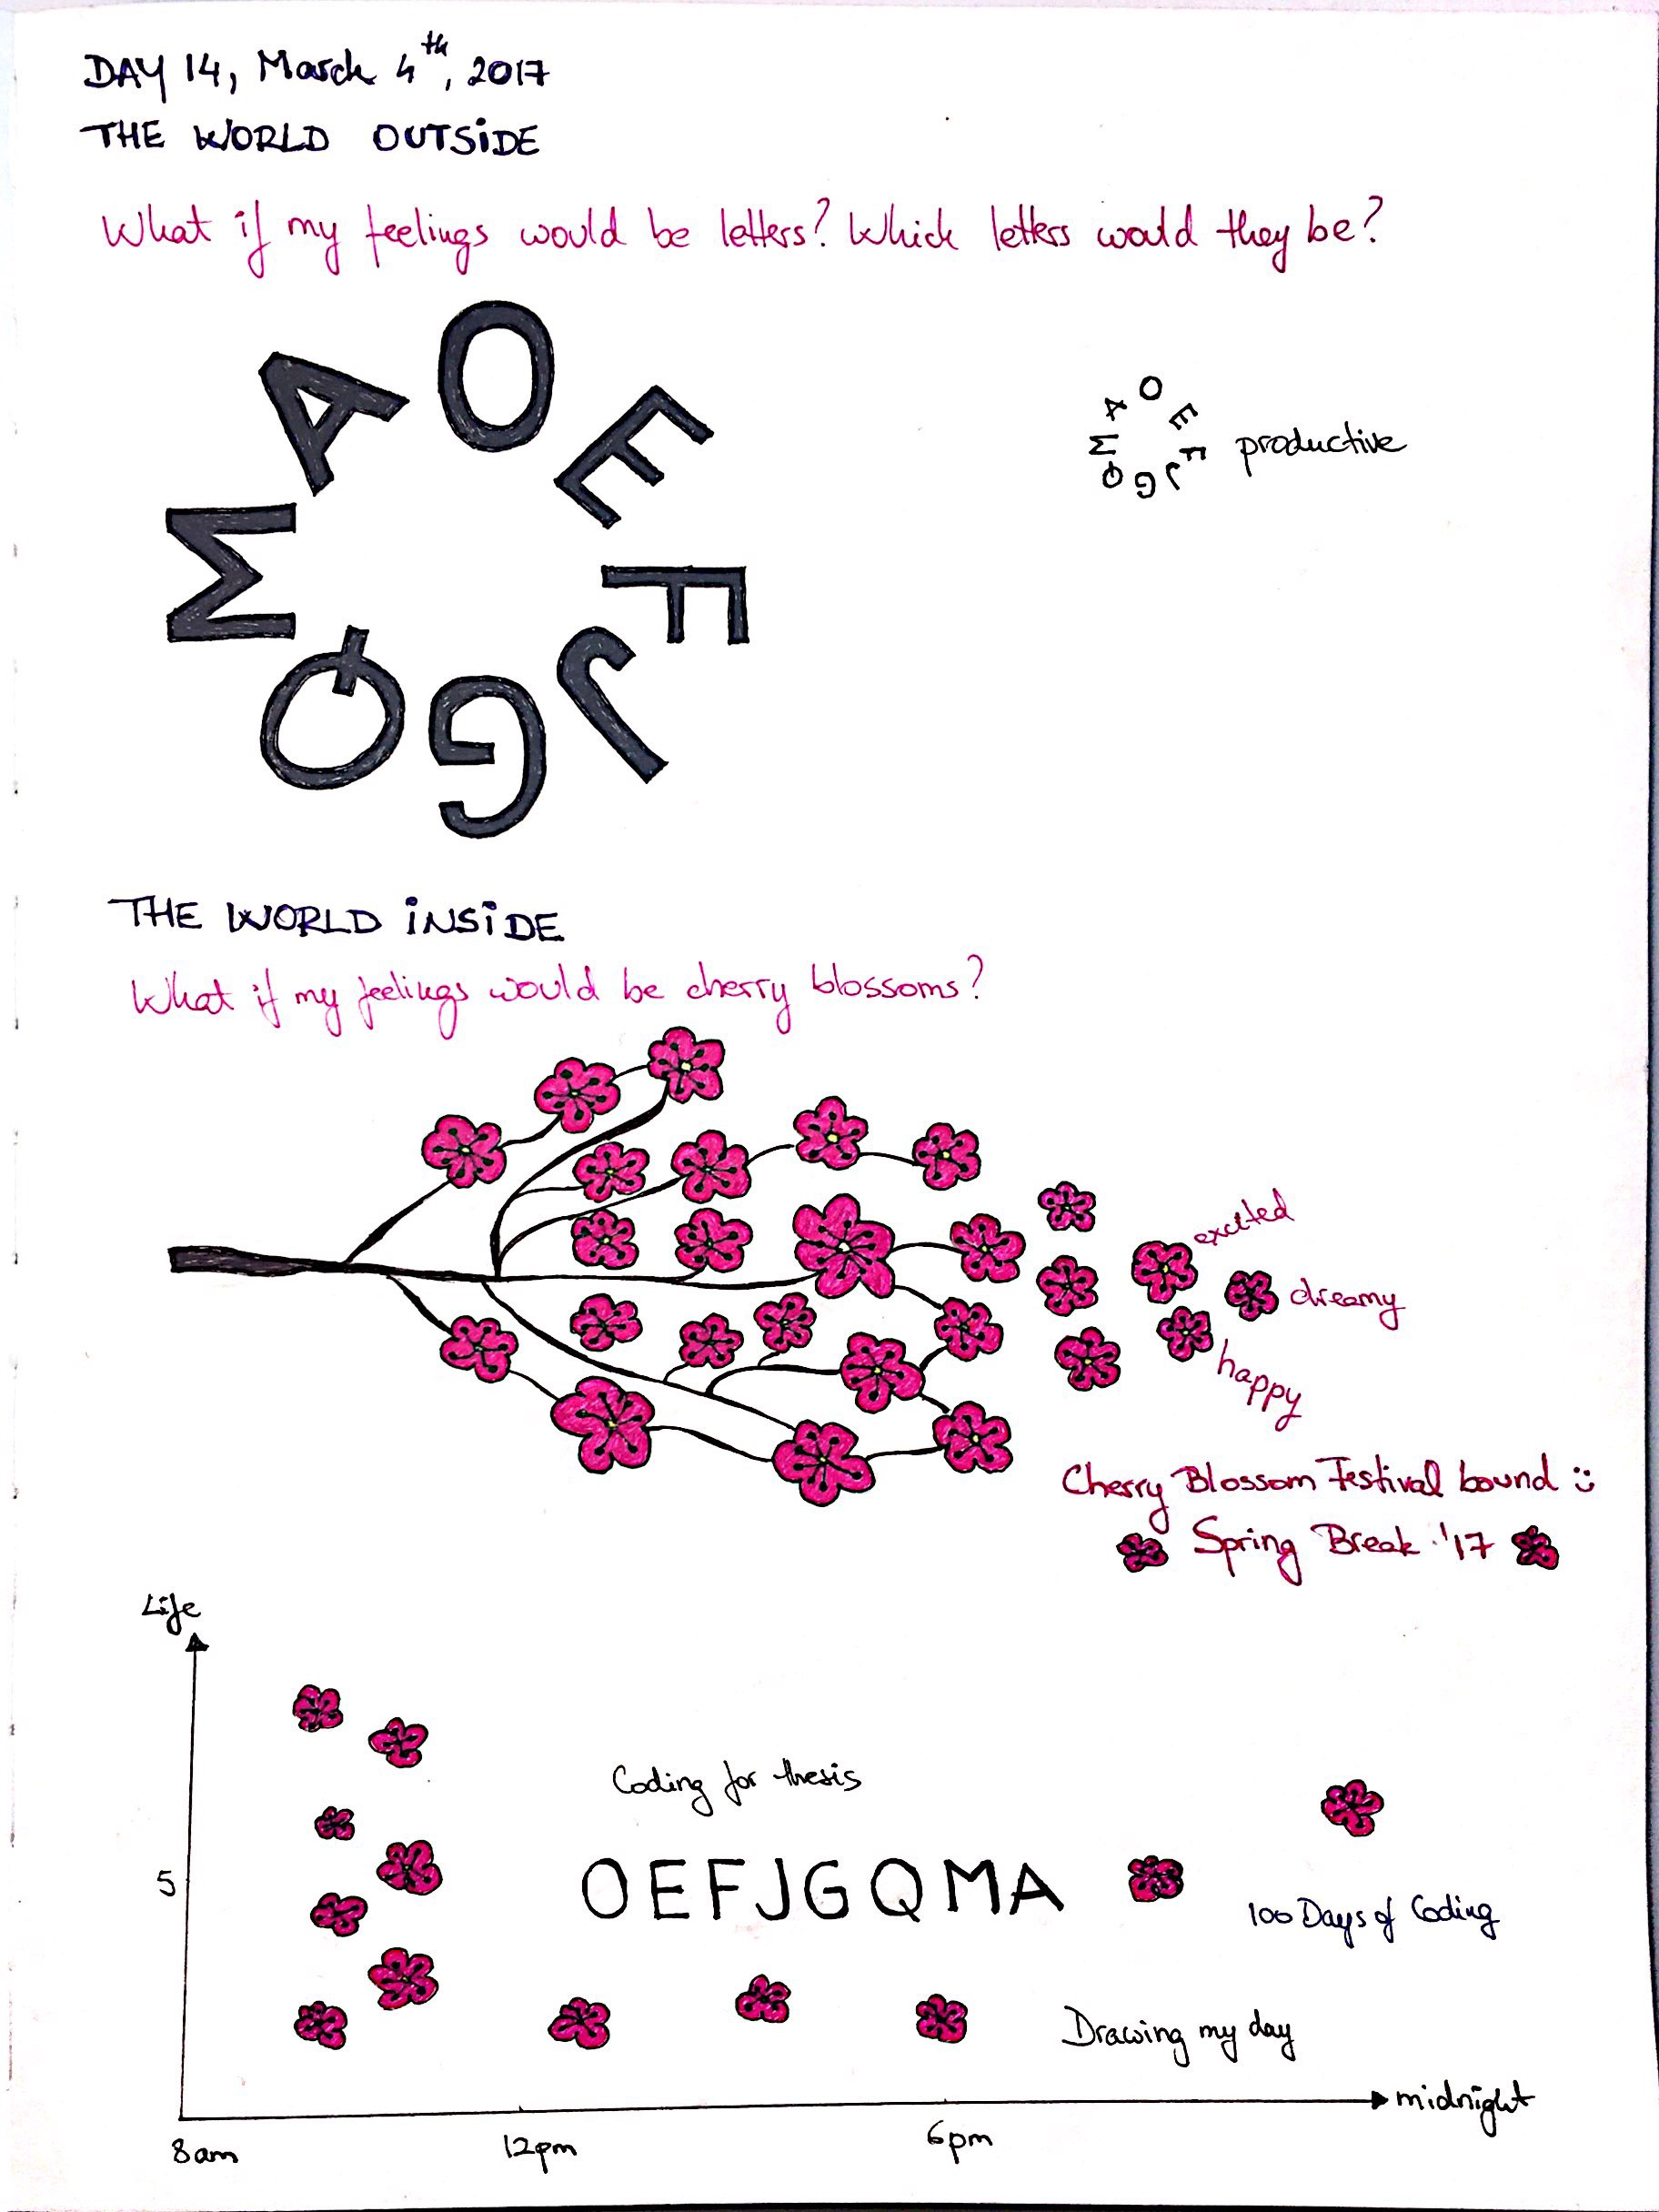 DAY 14, March 4th, 2017
THE WORLD OUTSIDE
What if my feelings would be letters? Which letters would they be?
O E F J G Q M A
O E F J G Q M A productive
THE WORLD INSIDE
What if my feelings would be cherry blossoms?
excited
dreamy
happy
Cherry Blossom Festival bound :)
Spring Break '17
Life
Coding for thesis
5
OEFJGQMA
100 Days of Coding
Drawing my day
midnight
8am 12pm 6pm